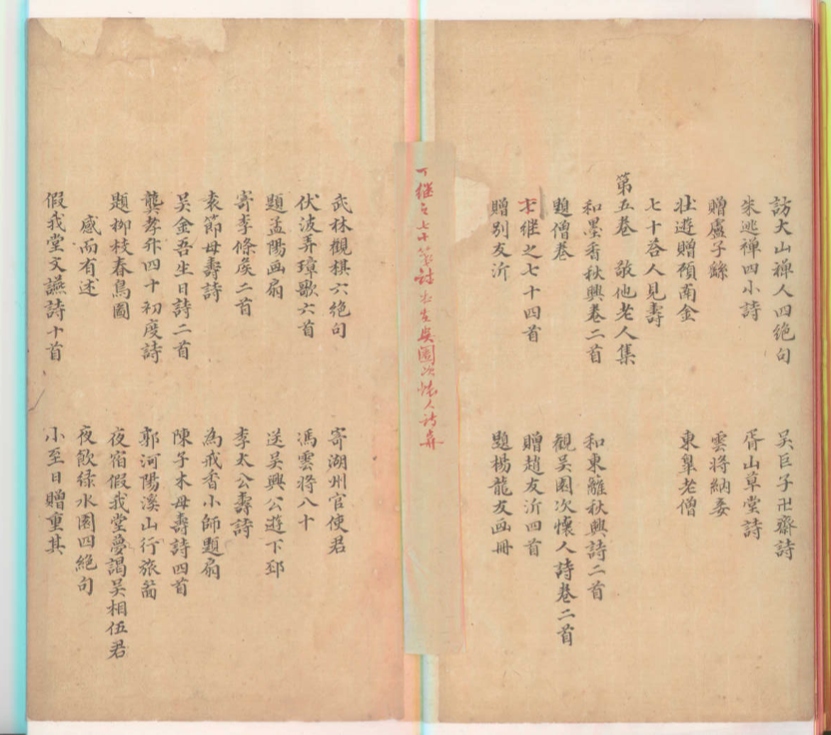 訪大山禅人四絶句 吴巨子卍齋詩
朱逃禪四小詩 胥山草堂詩
贈盧子繇 雲将納妾
壮遊贈顧南金 東皋老僧
七十荅人見壽
第五卷 敬他老人集
和墨香秋興卷二首 和東籬秋興詩二首
題僧卷 觀吴園次懷人詩卷二首
丁継之七十四首 贈趙友沂四首
贈别友沂 題楊龍友画冊
丁継之七十 詩 吴園次懷人詩卷
武林觀棋六絶句 寄湖州官使君
伏波弄璋歌六首 馮雲将八十
題孟陽画扇 送吴興公遊下邳
寄李條矦二首 李太公壽詩
袁節母壽詩 為戒香小師題扇
吴金吾生日詩二首 陳子木母壽詩四首
龔孝升四十初度詩 郭河陽溪山行旅啚
題柳枝春鳥圖 夜宿假我堂夢謁吴相伍君
感而有述 夜飲緑水園四絶句
假我堂文讌詩十首 小至日贈重其